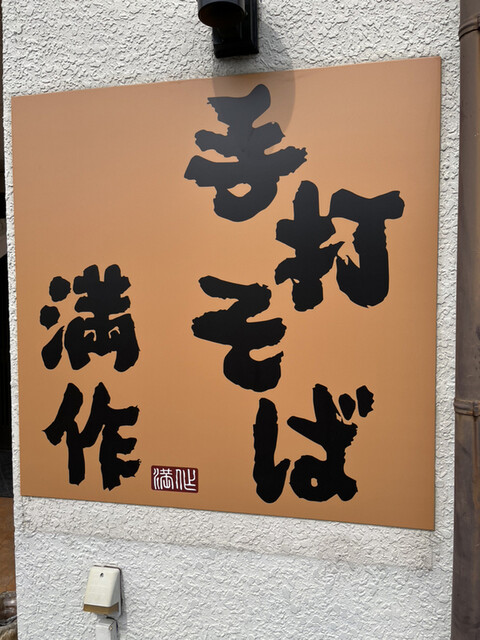 手打そば
満作
満作